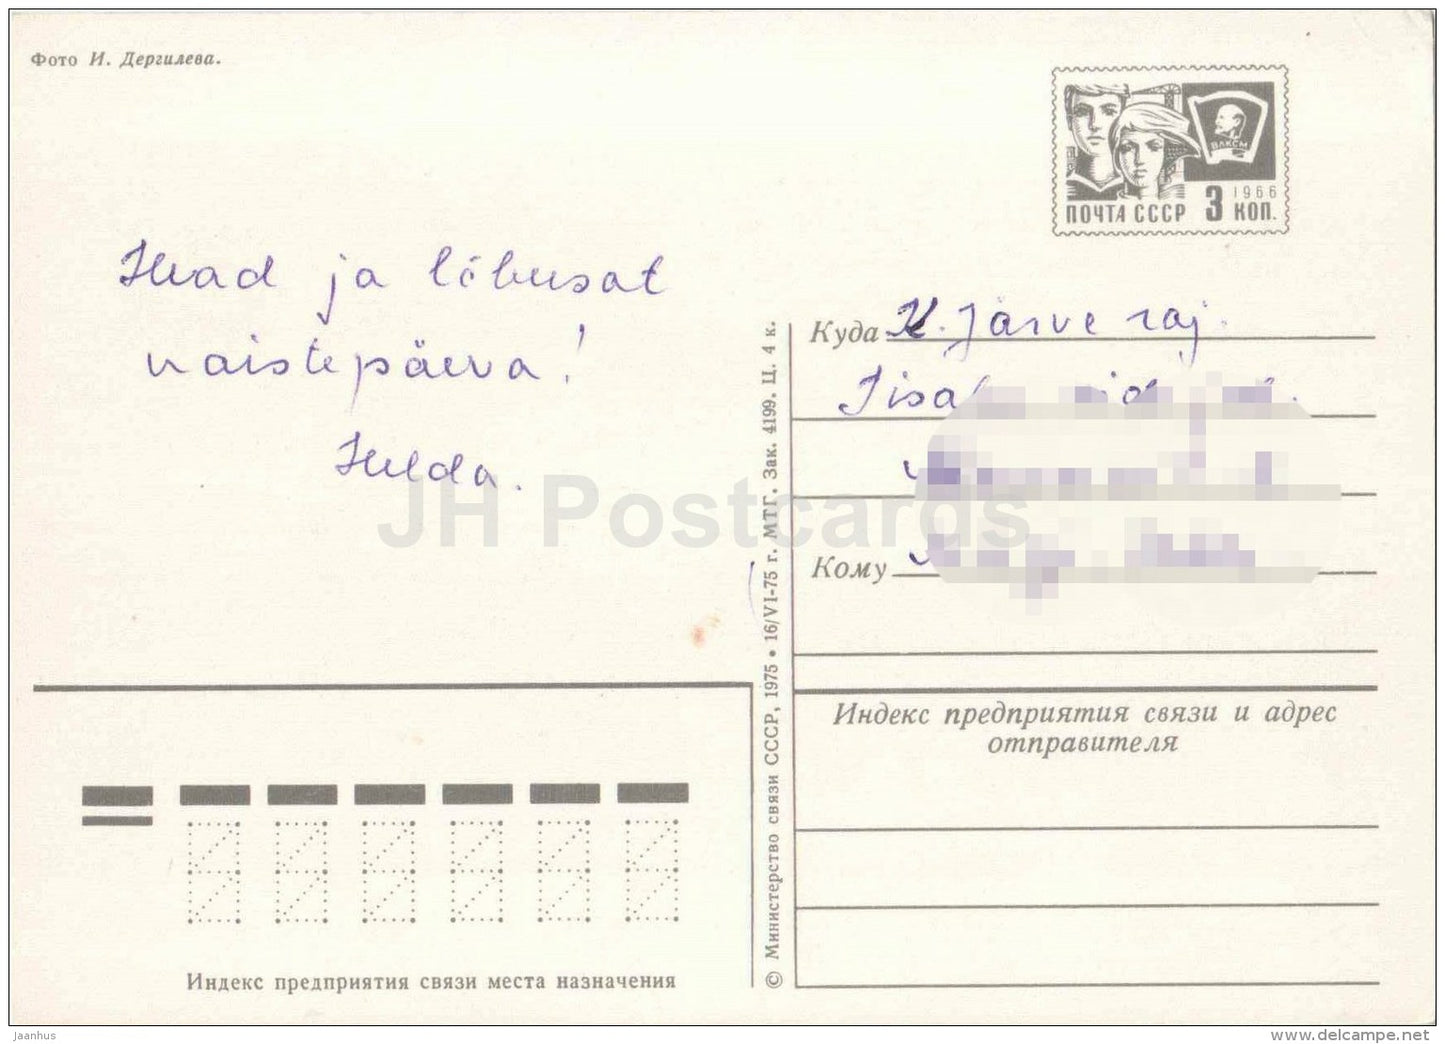 Фото И. Дергилева.
ВЛКСМ
1966
ПОЧТА СССР 3 КОП.
Head ja lõbusat
naistepäeva!
Helda.
Куда K. Järve raj.
Кому
Индекс предприятия связи и адрес
отправителя
© Министерство связи СССР, 1975 • 16/VI-75 г. МТГ. Зак. 4199. Ц. 4 к.
Индекс предприятия связи места назначения
JH Postcards
jaanhus
www.delcampe.net